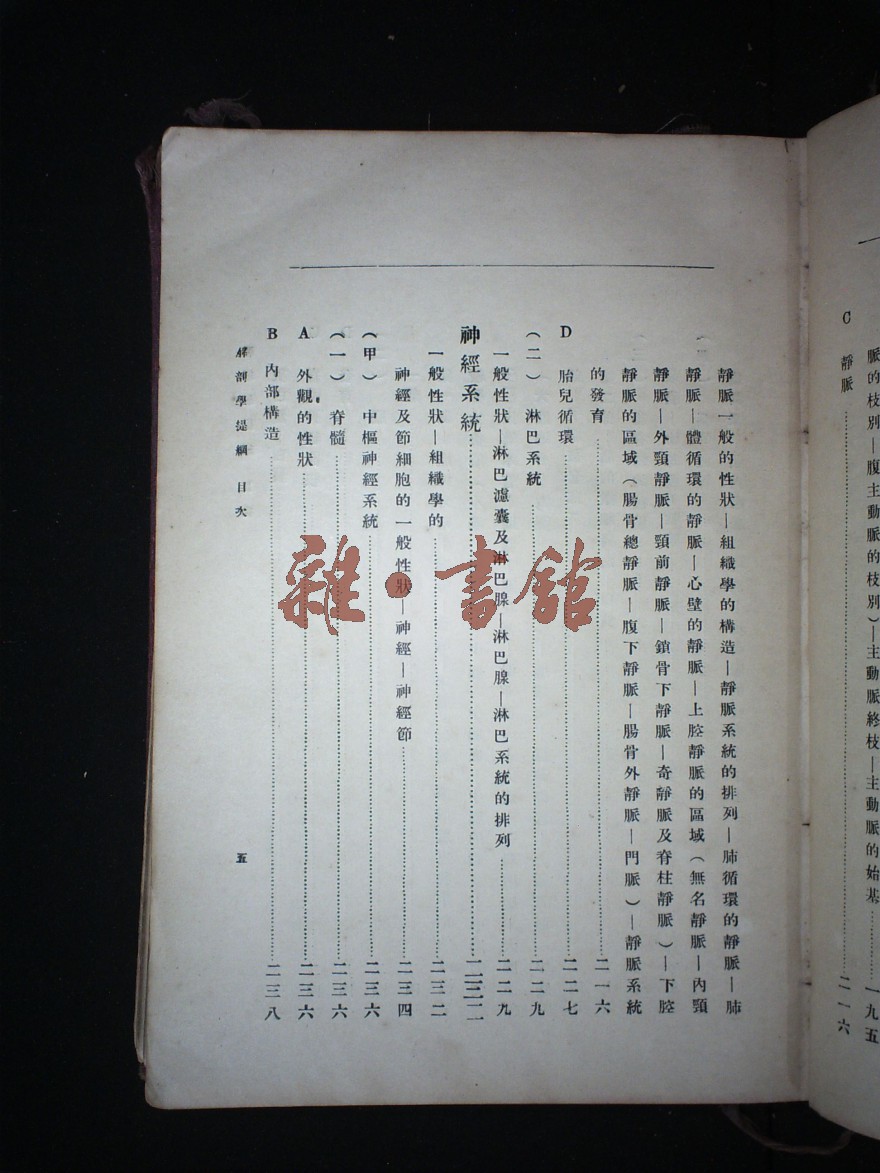 脈的枝別—腹主動脈的枝別）—主動脈終枝—主動脈的始基…………一九五
C　靜脈…………二一六
靜脈一般的性狀—組織學的構造—靜脈系統的排列—肺循環的靜脈—肺
靜脈—體循環的靜脈—心壁的靜脈—上腔靜脈的區域（無名靜脈—內頸
靜脈—外頸靜脈—頸前靜脈—鎖骨下靜脈—奇靜脈及脊柱靜脈）—下腔
靜脈的區域（腸骨總靜脈—腹下靜脈—腸骨外靜脈—門脈）—靜脈系統
的發育…………二一六
D　胎兒循環…………二二七
（二）　淋巴系統…………二二九
一般性狀—淋巴濾囊及淋巴腺—淋巴腺—淋巴系統的排列…………二二九
神經系統…………二三二
一般性狀—組織學的…………二三二
神經及節細胞的一般性狀—神經—神經節…………二三四
（甲）　中樞神經系統…………二三六
（一）　脊髓…………二三六
A　外觀的性狀…………二三六
B　內部構造…………二三八
解剖學提綱　目次
五
雜·書館